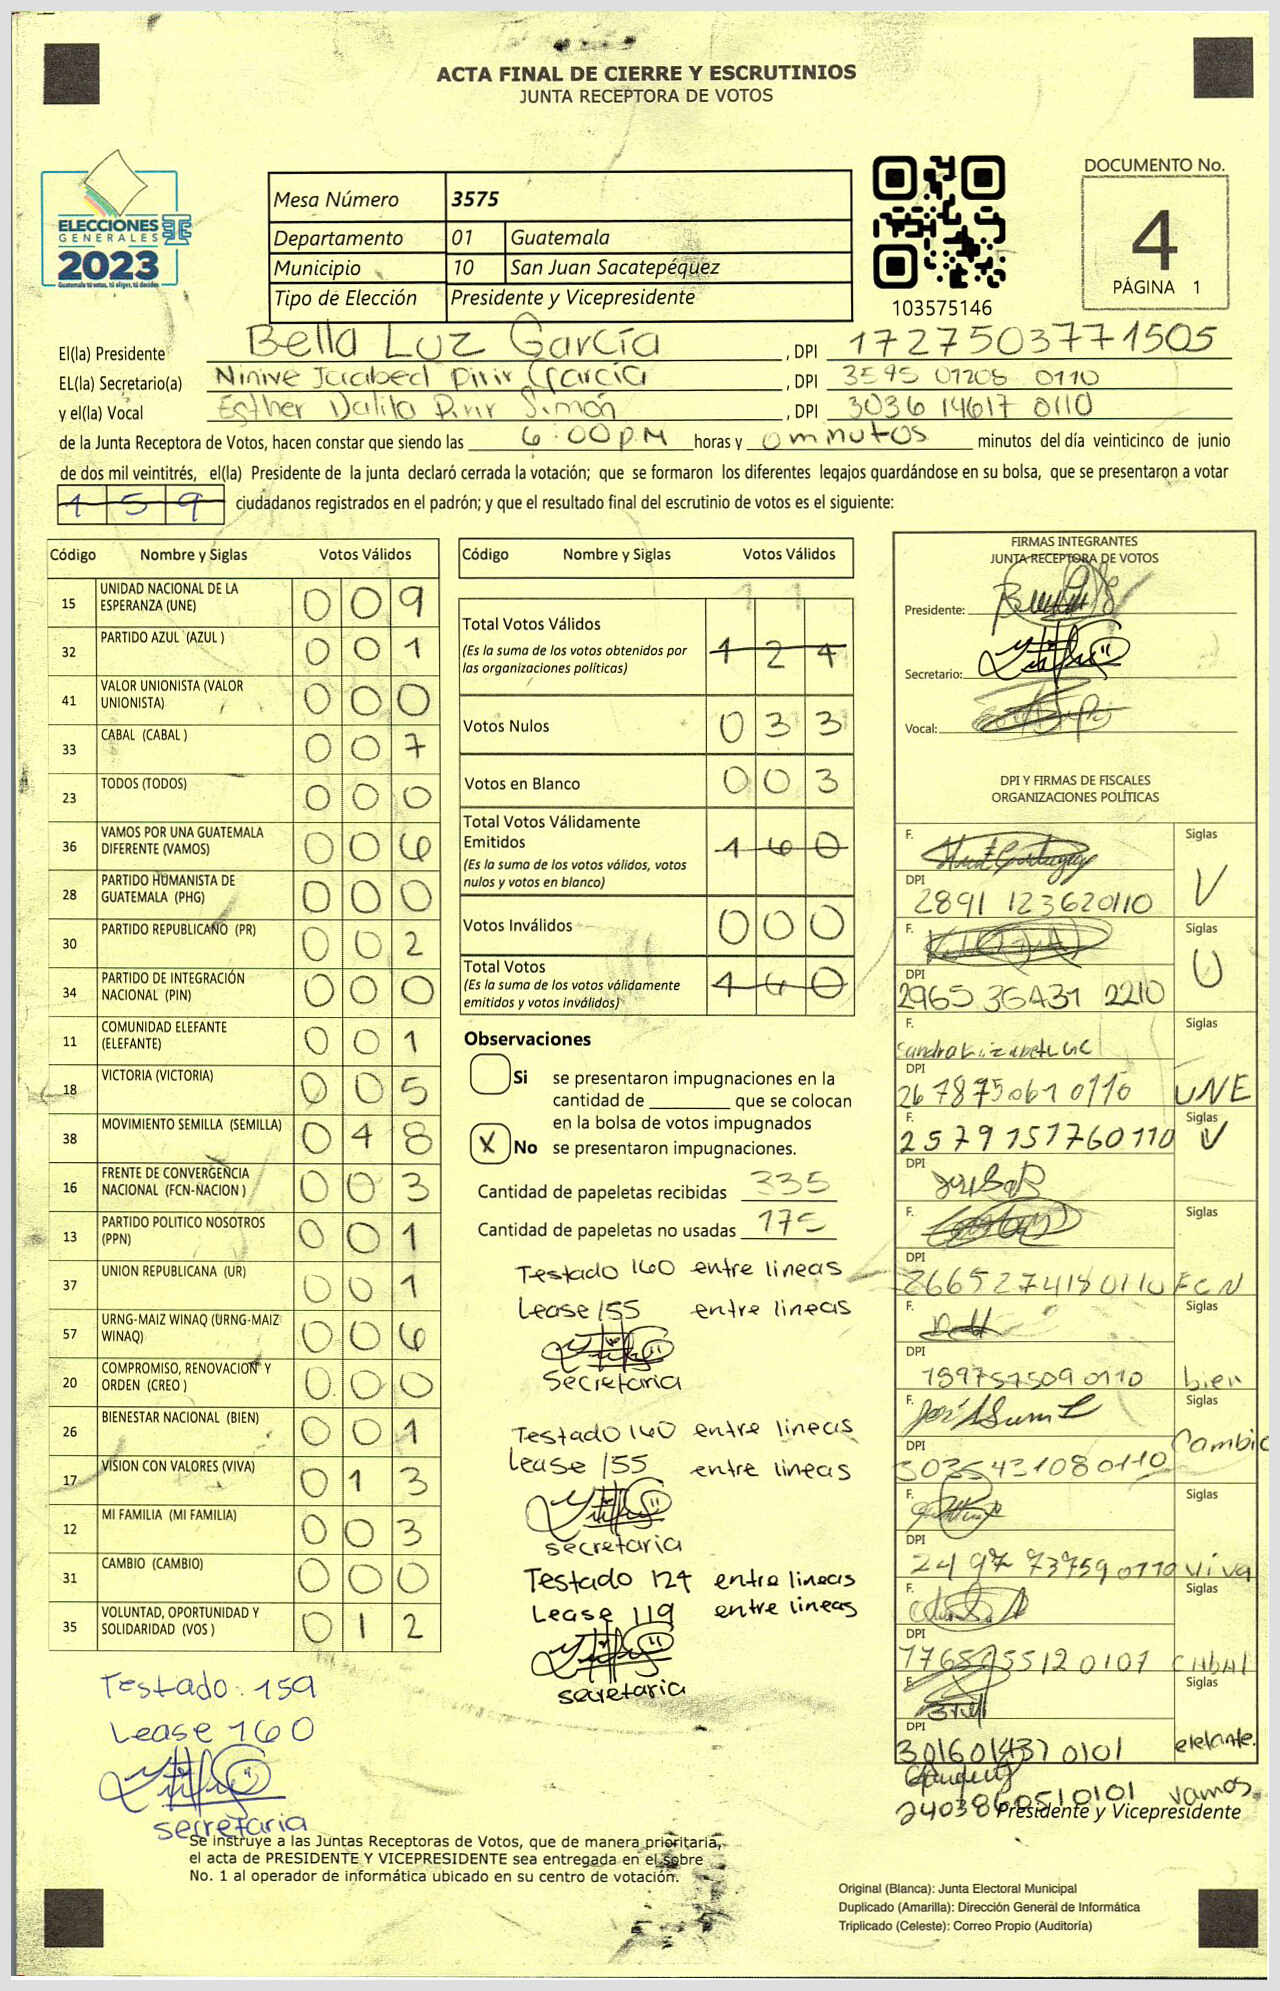 ACTA FINAL DE CIERRE Y ESCRUTINIOS
JUNTA RECEPTORA DE VOTOS
ELECCIONES
GENERALES
2023
Guatemala tú votas, tú eliges, tú decides
Mesa Número 3575
Departamento 01 Guatemala
Municipio 10 San Juan Sacatepéquez
Tipo de Elección Presidente y Vicepresidente
103575146
DOCUMENTO No.
4
PÁGINA 1
El(la) Presidente Bella Luz García , DPI 1727503771505
EL(la) Secretario(a) Ninive Jarabed Pirir García , DPI 3595 01208 0110
y el(la) Vocal Esther Dalila Pirir Simón , DPI 3036 14617 0110
de la Junta Receptora de Votos, hacen constar que siendo las 6:00 P.M horas y 0 minutos minutos del día veinticinco de junio
de dos mil veintitrés, el(la) Presidente de la junta declaró cerrada la votación; que se formaron los diferentes legajos guardándose en su bolsa, que se presentaron a votar
159 ciudadanos registrados en el padrón; y que el resultado final del escrutinio de votos es el siguiente:
Código Nombre y Siglas Votos Válidos
15 UNIDAD NACIONAL DE LA ESPERANZA (UNE) 009
32 PARTIDO AZUL (AZUL ) 001
41 VALOR UNIONISTA (VALOR UNIONISTA) 000
33 CABAL (CABAL ) 007
23 TODOS (TODOS) 000
36 VAMOS POR UNA GUATEMALA DIFERENTE (VAMOS) 006
28 PARTIDO HUMANISTA DE GUATEMALA (PHG) 000
30 PARTIDO REPUBLICANO (PR) 002
34 PARTIDO DE INTEGRACIÓN NACIONAL (PIN) 000
11 COMUNIDAD ELEFANTE (ELEFANTE) 001
18 VICTORIA (VICTORIA) 005
38 MOVIMIENTO SEMILLA (SEMILLA) 048
16 FRENTE DE CONVERGENCIA NACIONAL (FCN-NACION ) 003
13 PARTIDO POLITICO NOSOTROS (PPN) 001
37 UNION REPUBLICANA (UR) 001
57 URNG-MAIZ WINAQ (URNG-MAIZ WINAQ) 006
20 COMPROMISO, RENOVACION Y ORDEN (CREO ) 000
26 BIENESTAR NACIONAL (BIEN) 001
17 VISION CON VALORES (VIVA) 013
12 MI FAMILIA (MI FAMILIA) 003
31 CAMBIO (CAMBIO) 000
35 VOLUNTAD, OPORTUNIDAD Y SOLIDARIDAD (VOS ) 012
Testado: 159
Lease 160
secretaria
Código Nombre y Siglas Votos Válidos
Total Votos Válidos 124
(Es la suma de los votos obtenidos por
las organizaciones políticas)
Votos Nulos 033
Votos en Blanco 003
Total Votos Válidamente
Emitidos 160
(Es la suma de los votos válidos, votos
nulos y votos en blanco)
Votos Inválidos 000
Total Votos 160
(Es la suma de los votos válidamente
emitidos y votos inválidos)
Observaciones
Si se presentaron impugnaciones en la
cantidad de ________ que se colocan
en la bolsa de votos impugnados
X No se presentaron impugnaciones.
Cantidad de papeletas recibidas 335
Cantidad de papeletas no usadas 175
Testado 160 entre lineas
Lease 155 entre lineas
Secretaria
Testado 160 entre lineas
Lease 155 entre lineas
secretaria
Testado 124 entre lineas
Lease 119 entre lineas
secretaria
FIRMAS INTEGRANTES
JUNTA RECEPTORA DE VOTOS
Presidente:
Secretario:
Vocal:
DPI Y FIRMAS DE FISCALES
ORGANIZACIONES POLÍTICAS
F. Siglas
DPI V
2891 123620110
F. Siglas
DPI U
F. Siglas
DPI
26 7875061 0110 UNE
F. Siglas
2579 151760110 V
DPI
F. Siglas
DPI
266527418 0110 FCN
F. Siglas
DPI
bien
F. Siglas
DPI Cambio
303543108 0110
F. Siglas
DPI
2497 73759 0110 viva
F. Siglas
DPI
F. Siglas
DPI
301601437 0101 elefante.
vamos
Presidente y Vicepresidente
Se instruye a las Juntas Receptoras de Votos, que de manera prioritaria,
el acta de PRESIDENTE Y VICEPRESIDENTE sea entregada en el sobre
No. 1 al operador de informática ubicado en su centro de votación.
Original (Blanca): Junta Electoral Municipal
Duplicado (Amarilla): Dirección General de Informática
Triplicado (Celeste): Correo Propio (Auditoría)